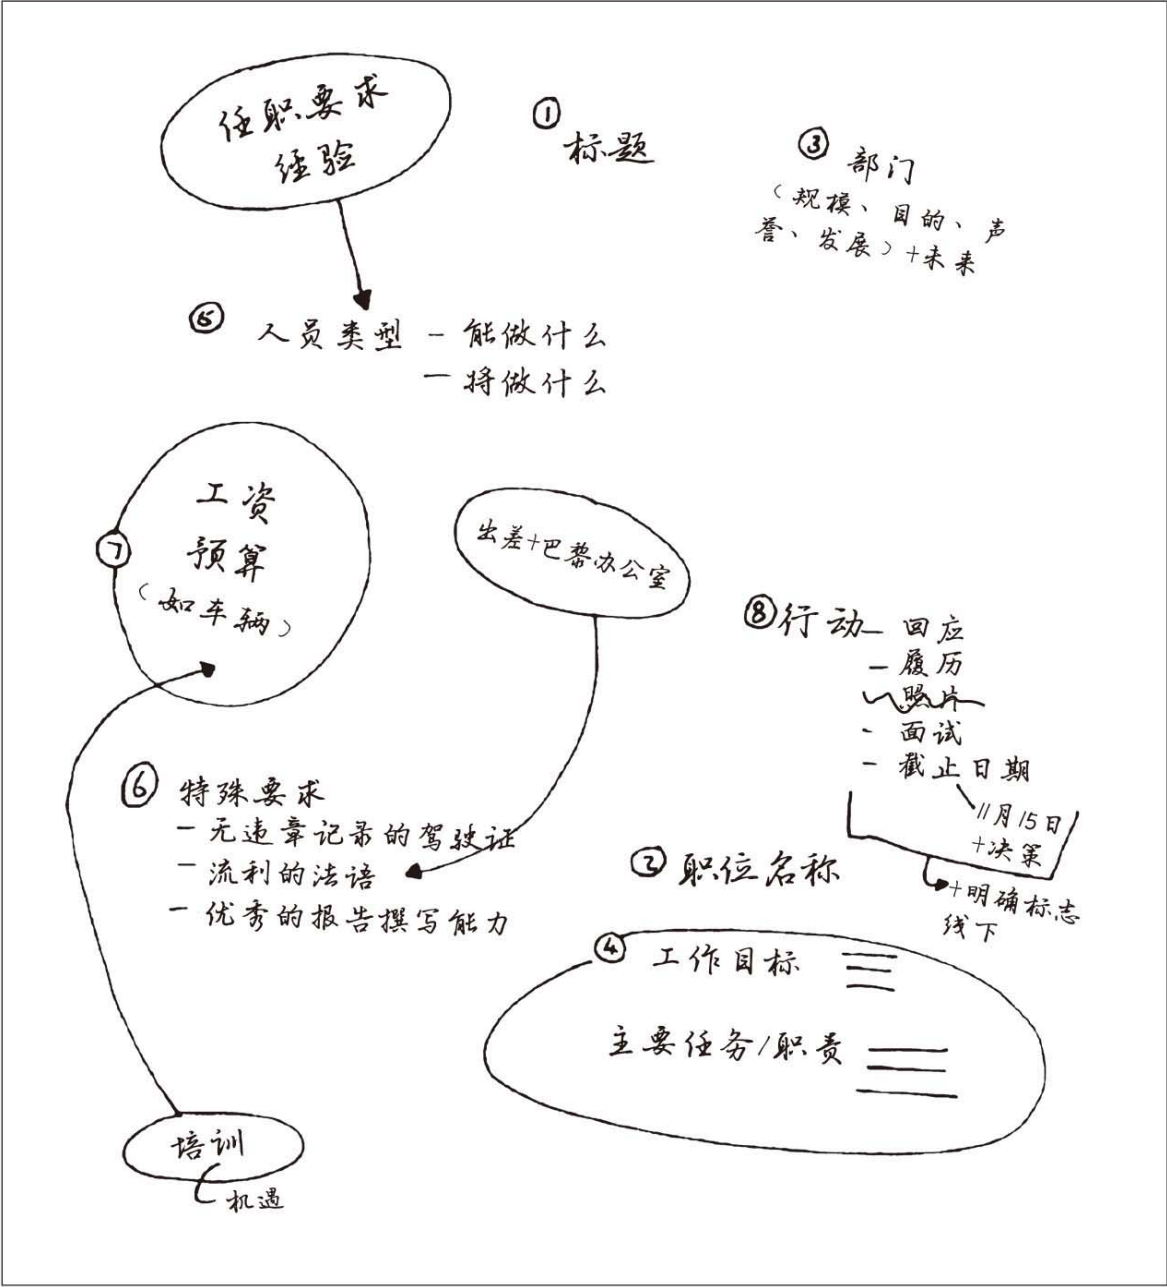 任职要求
经验
①
标题
③ 部门
（规模、目的、声
誉、发展）+未来
⑤ 人员类型 - 能做什么
- 将做什么
工资
⑦ 预算
（如车辆）
出差+巴黎办公室
⑧ 行动 - 回应
- 履历
- 照片
- 面试
- 截止日期
11月15日
+决策
+明确标志
线下
⑥ 特殊要求
- 无违章记录的驾驶证
- 流利的法语
- 优秀的报告撰写能力
② 职位名称
④ 工作目标
主要任务/职责
培训
机遇